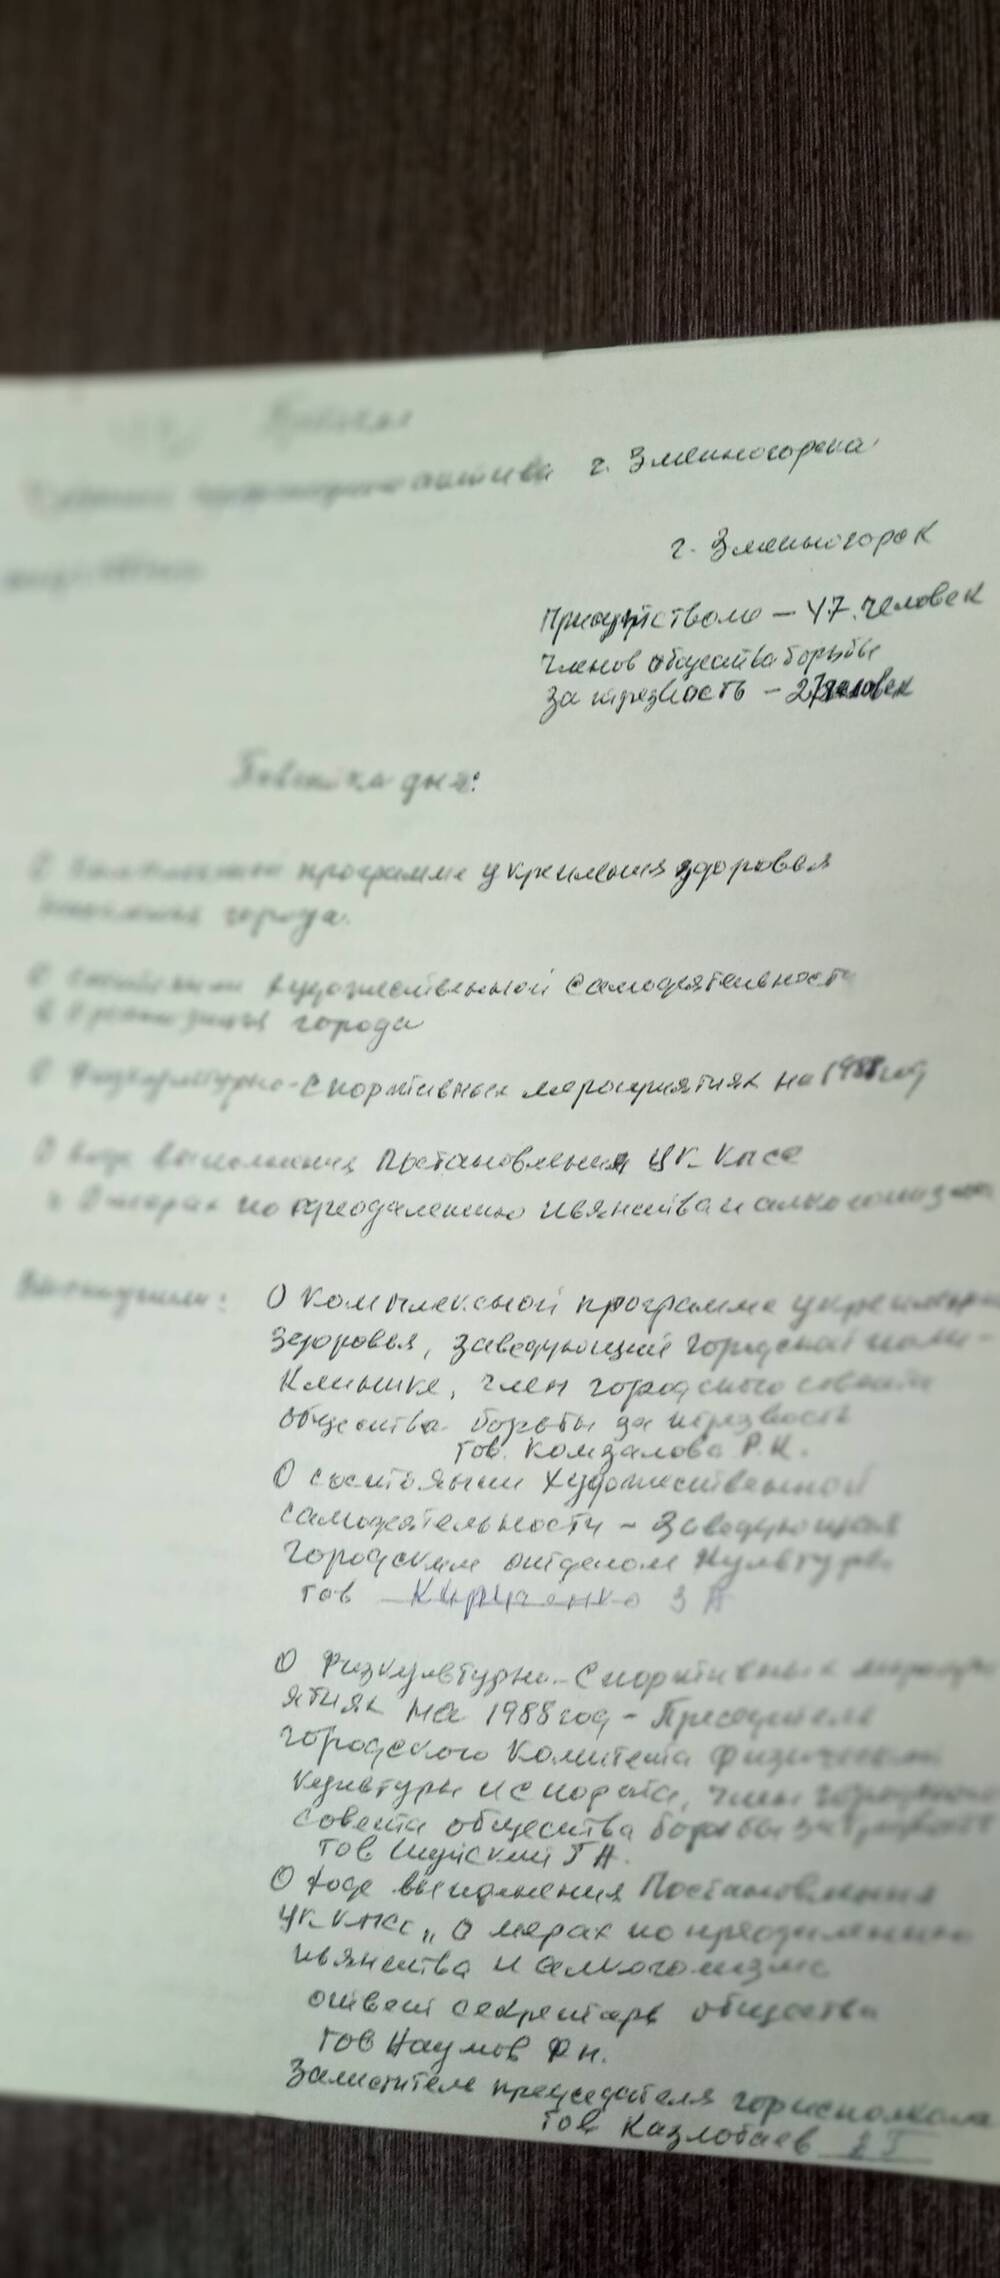 Протокол
актива г. Змеиногорска
г. Змеиногорск
Присутствовало – 47 человек
членов общества борьбы
за трезвость – 27 человек
Повестка дня:
О комплексной программе укрепления здоровья
населения города.
О состоянии художественной самодеятельности
в организациях города
О физкультурно-спортивных мероприятиях на 1988 год
О ходе выполнения постановления ЦК КПСС
" О мерах по преодолению пьянства и алкоголизма
Выступили: О комплексной программе укрепления
здоровья, заведующий городской поли-
клинике, член городского совета
общества борьбы за трезвость
тов. Комзалова Р.К.
О состоянии художественной
самодеятельности – заведующая
городским отделом культуры
тов Кириченко З А
О физкультурно-спортивных меропри
ятиях на 1988 год – Председатель
городского комитета физической
культуры и спорта, член городского
совета общества борьбы за трезвость
тов Шуйский Г А.
О ходе выполнения Постановления
ЦК КПСС „ О мерах по преодолению
пьянства и алкоголизма
ответ секретарь общества
тов Наумов Ф н.
Заместитель председателя горисполкома
тов Казлобаев